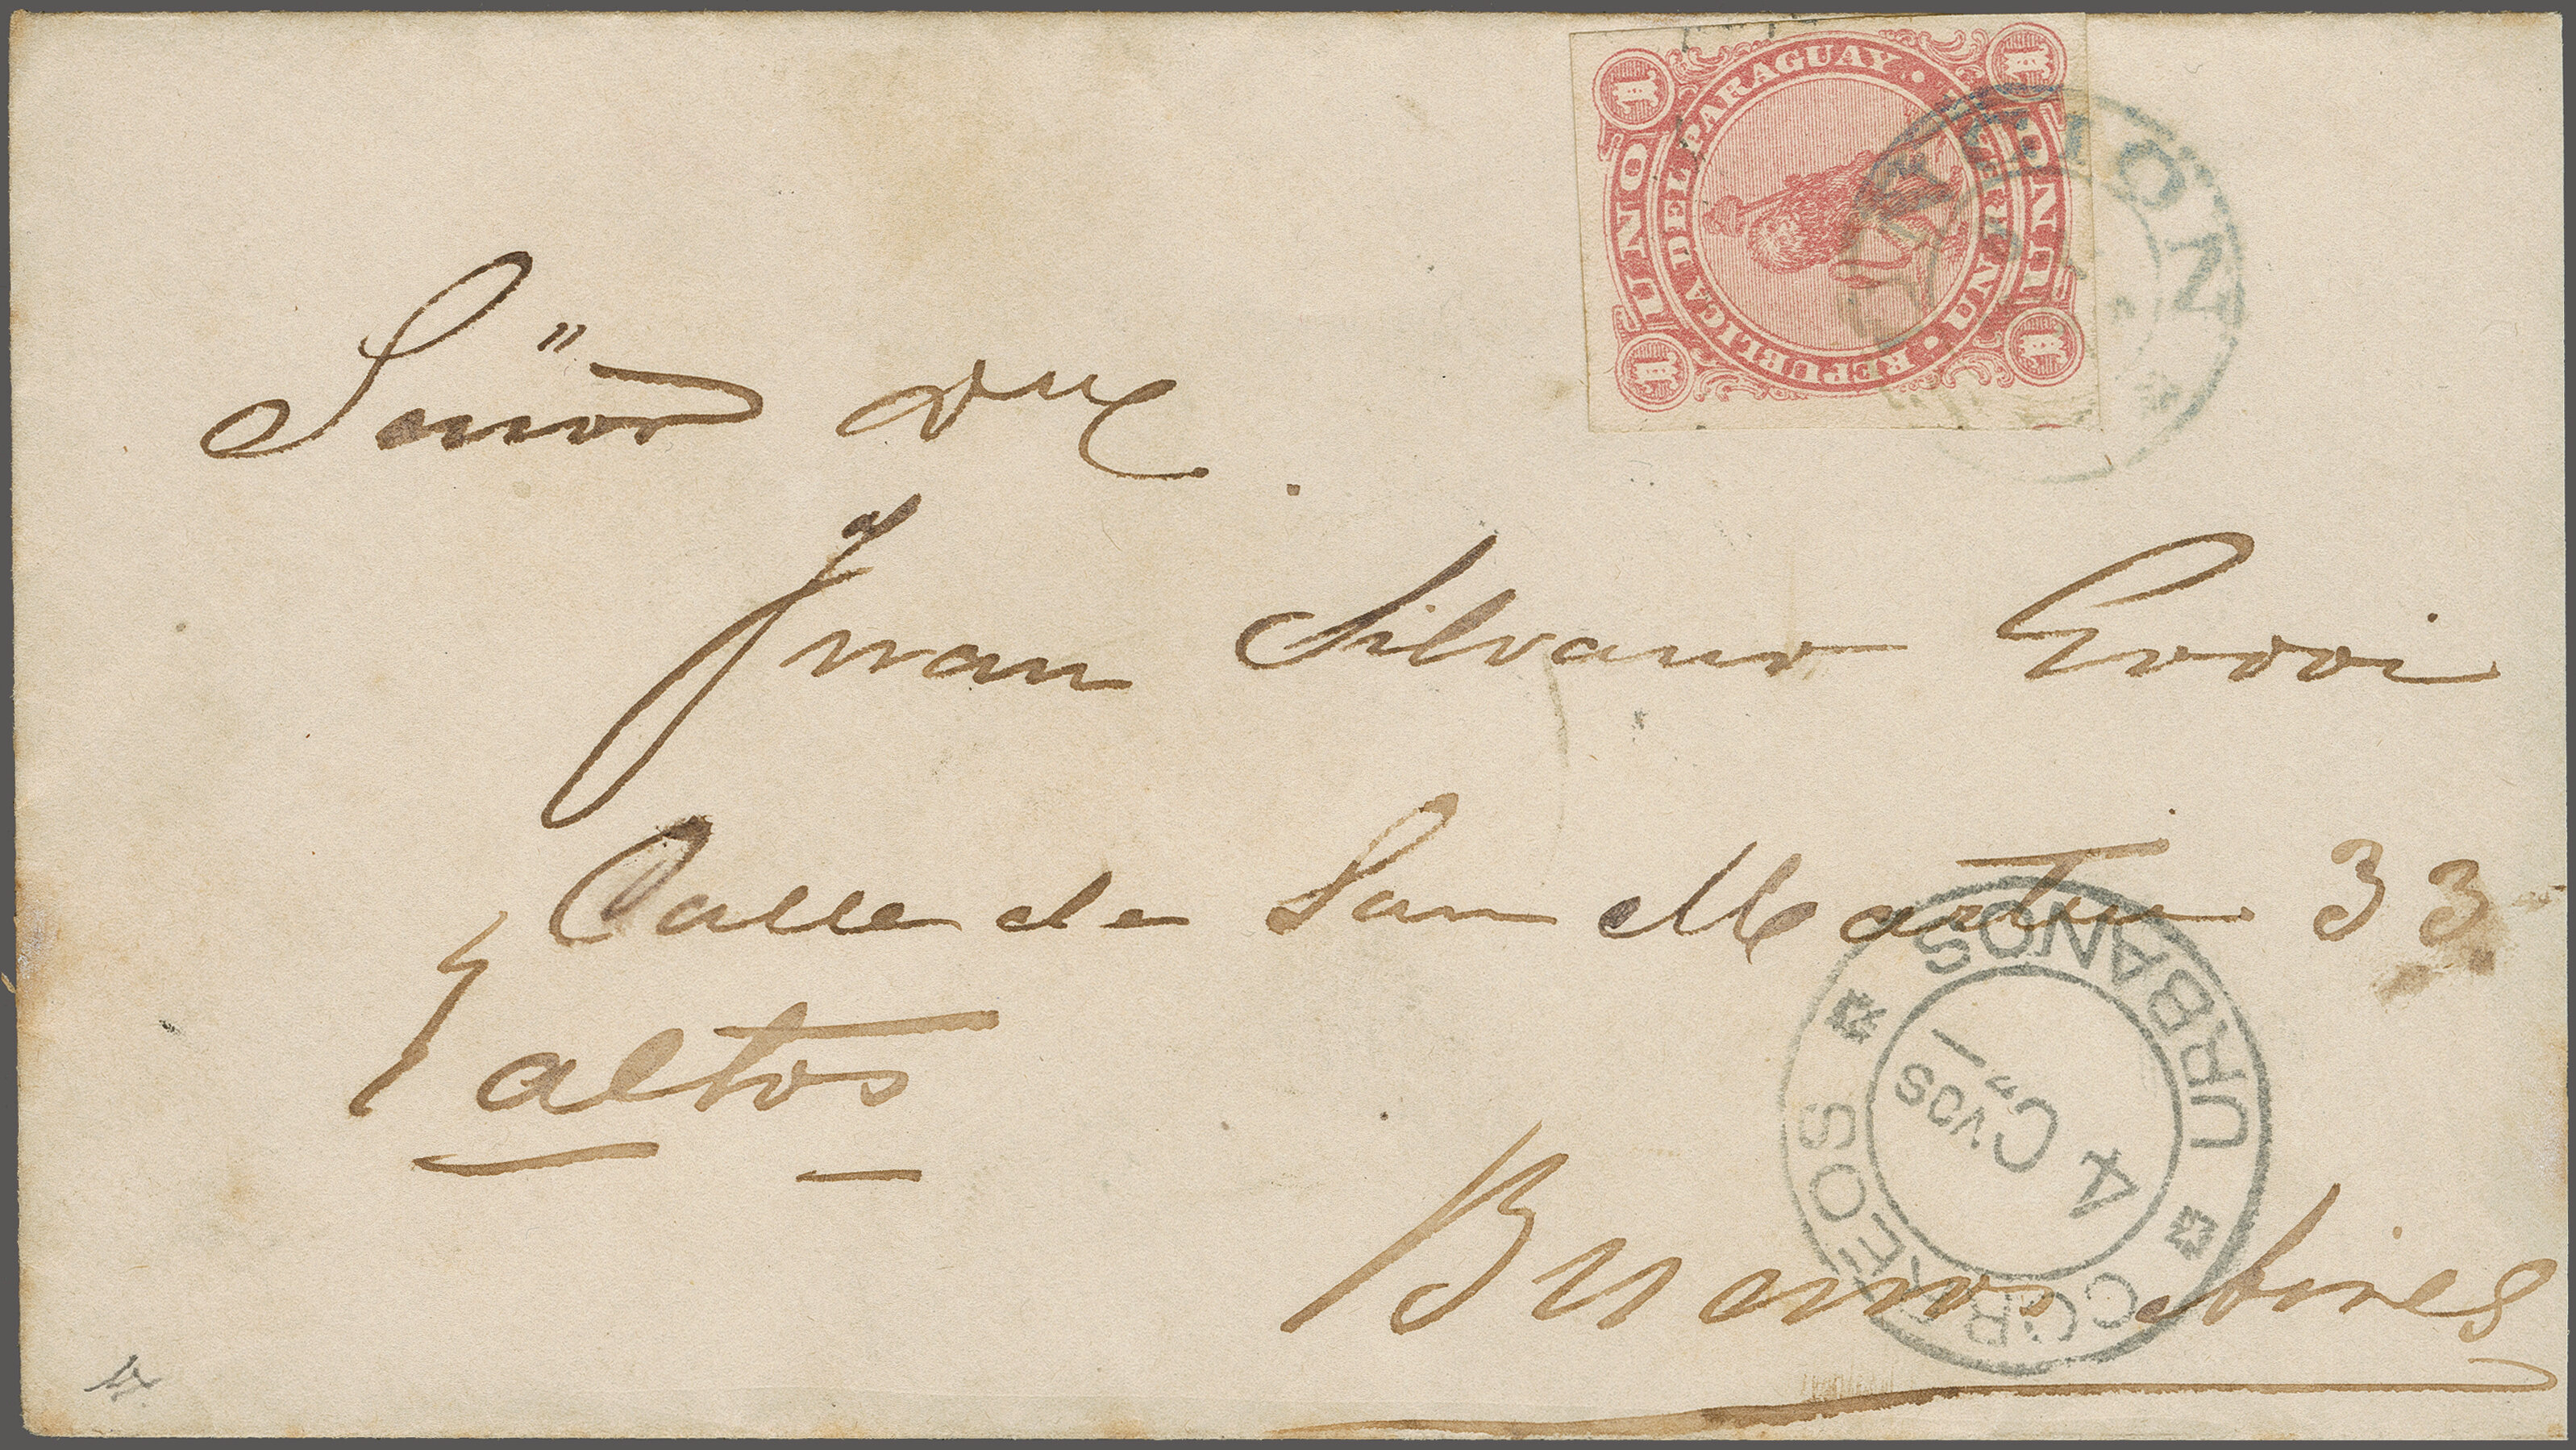 UNO
REPUBLICA DEL PARAGUAY
UN REAL
1
1
1
1
CIÓN
Señor Dn
Juan Silvano Godoi
Calle de San Martin 33
altos
Buenos Aires
CORREOS URBANOS
4 Cvos